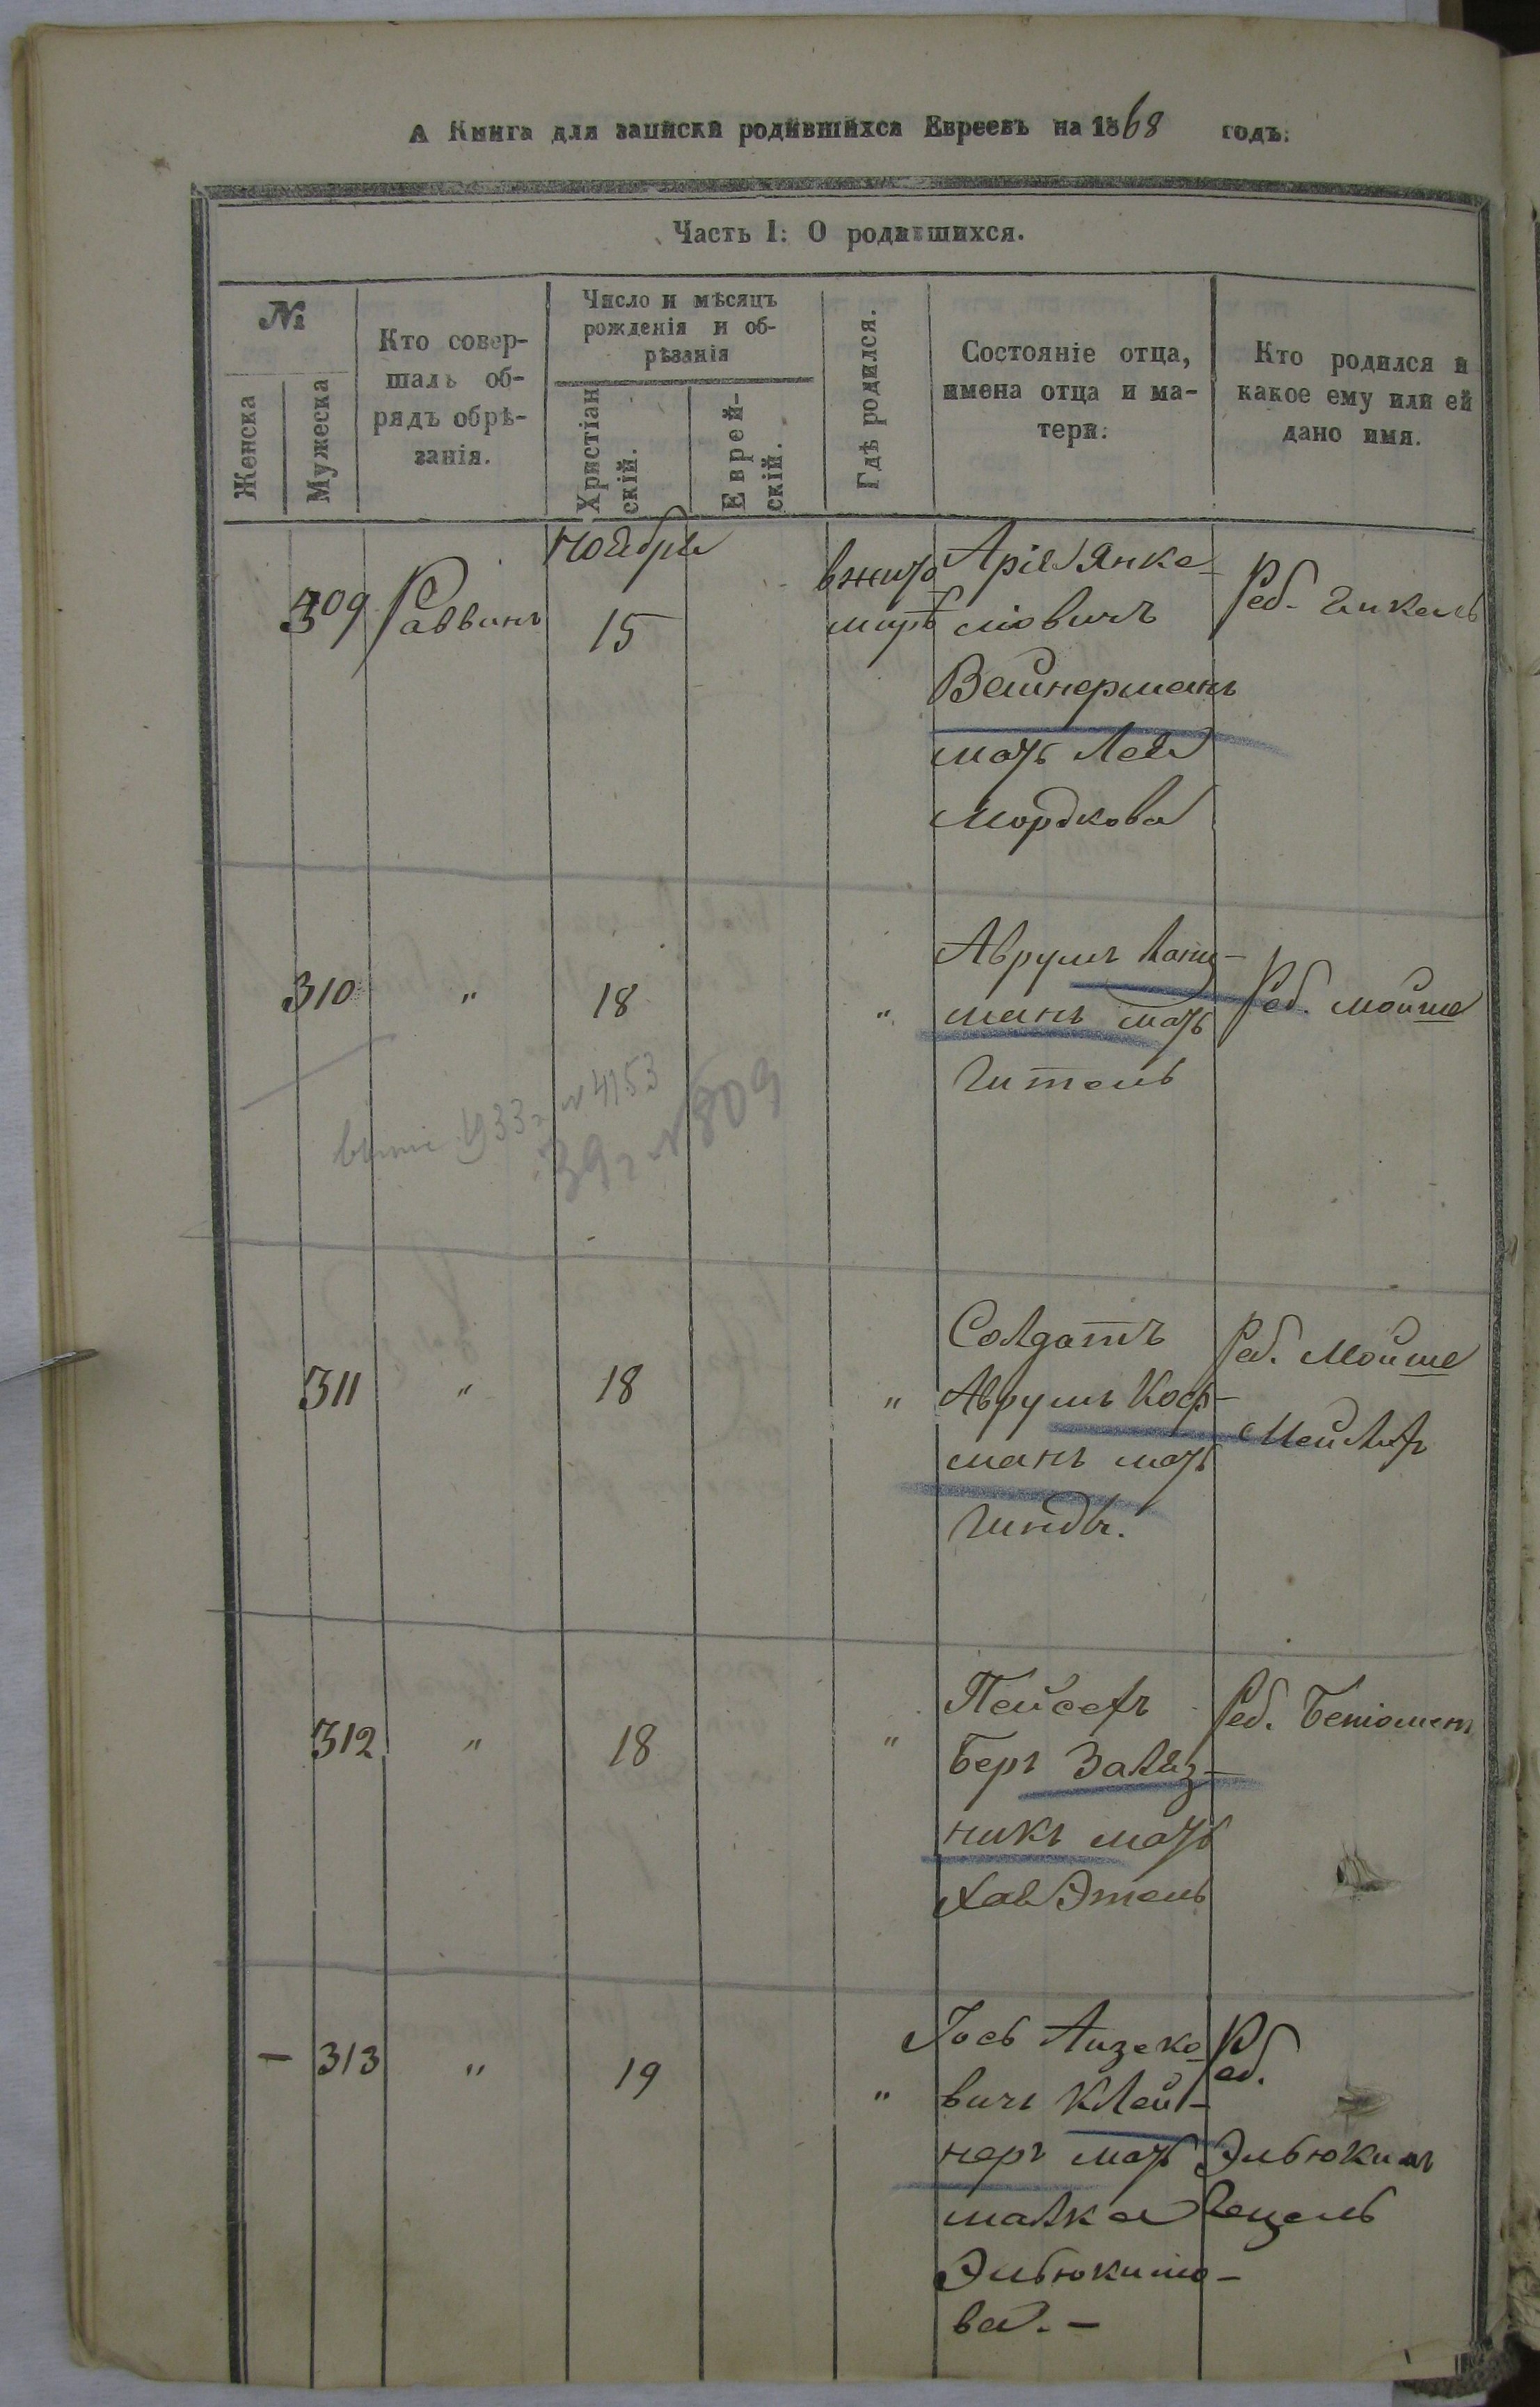 А Книга для записки родившихся Евреевъ на 1868 годъ.
Часть I: О родившихся.
№
Женска
Мужеска
Кто совер-
шалъ об-
рядъ обрѣ-
занія.
Число и мѣсяцъ
рожденія и об-
рѣзанія
Христіан
скій.
Еврей-
скій.
Гдѣ родился.
Состояніе отца,
имена отца и ма-
тери:
Кто родился и
какое ему или ей
дано имя.
309
Раввинъ
Ноября
15
в жито
мирѣ
Аріе Янке-
ліовичъ
Вайнерманъ
мать Лея
Мордкова
Реб.
310
"
18
"
Аврумъ
манъ мать
Гитель
Реб. Мойше
1933 г № 4153
39 г № 809
311
"
18
"
Солдатъ
Аврумъ Коф-
манъ мать
Гинда.
Реб. Мойше
Мейлѣхъ
312
"
18
"
Пейсехъ
Беръ Заляз-
никъ мать
Хая Этель
Реб. Беніоменъ
—
313
"
19
"
Іось Айзеко-
вичъ Клей-
неръ мать
Малка
Эльюкимо-
ва. —
Реб.
Эльюкимъ
Гецель